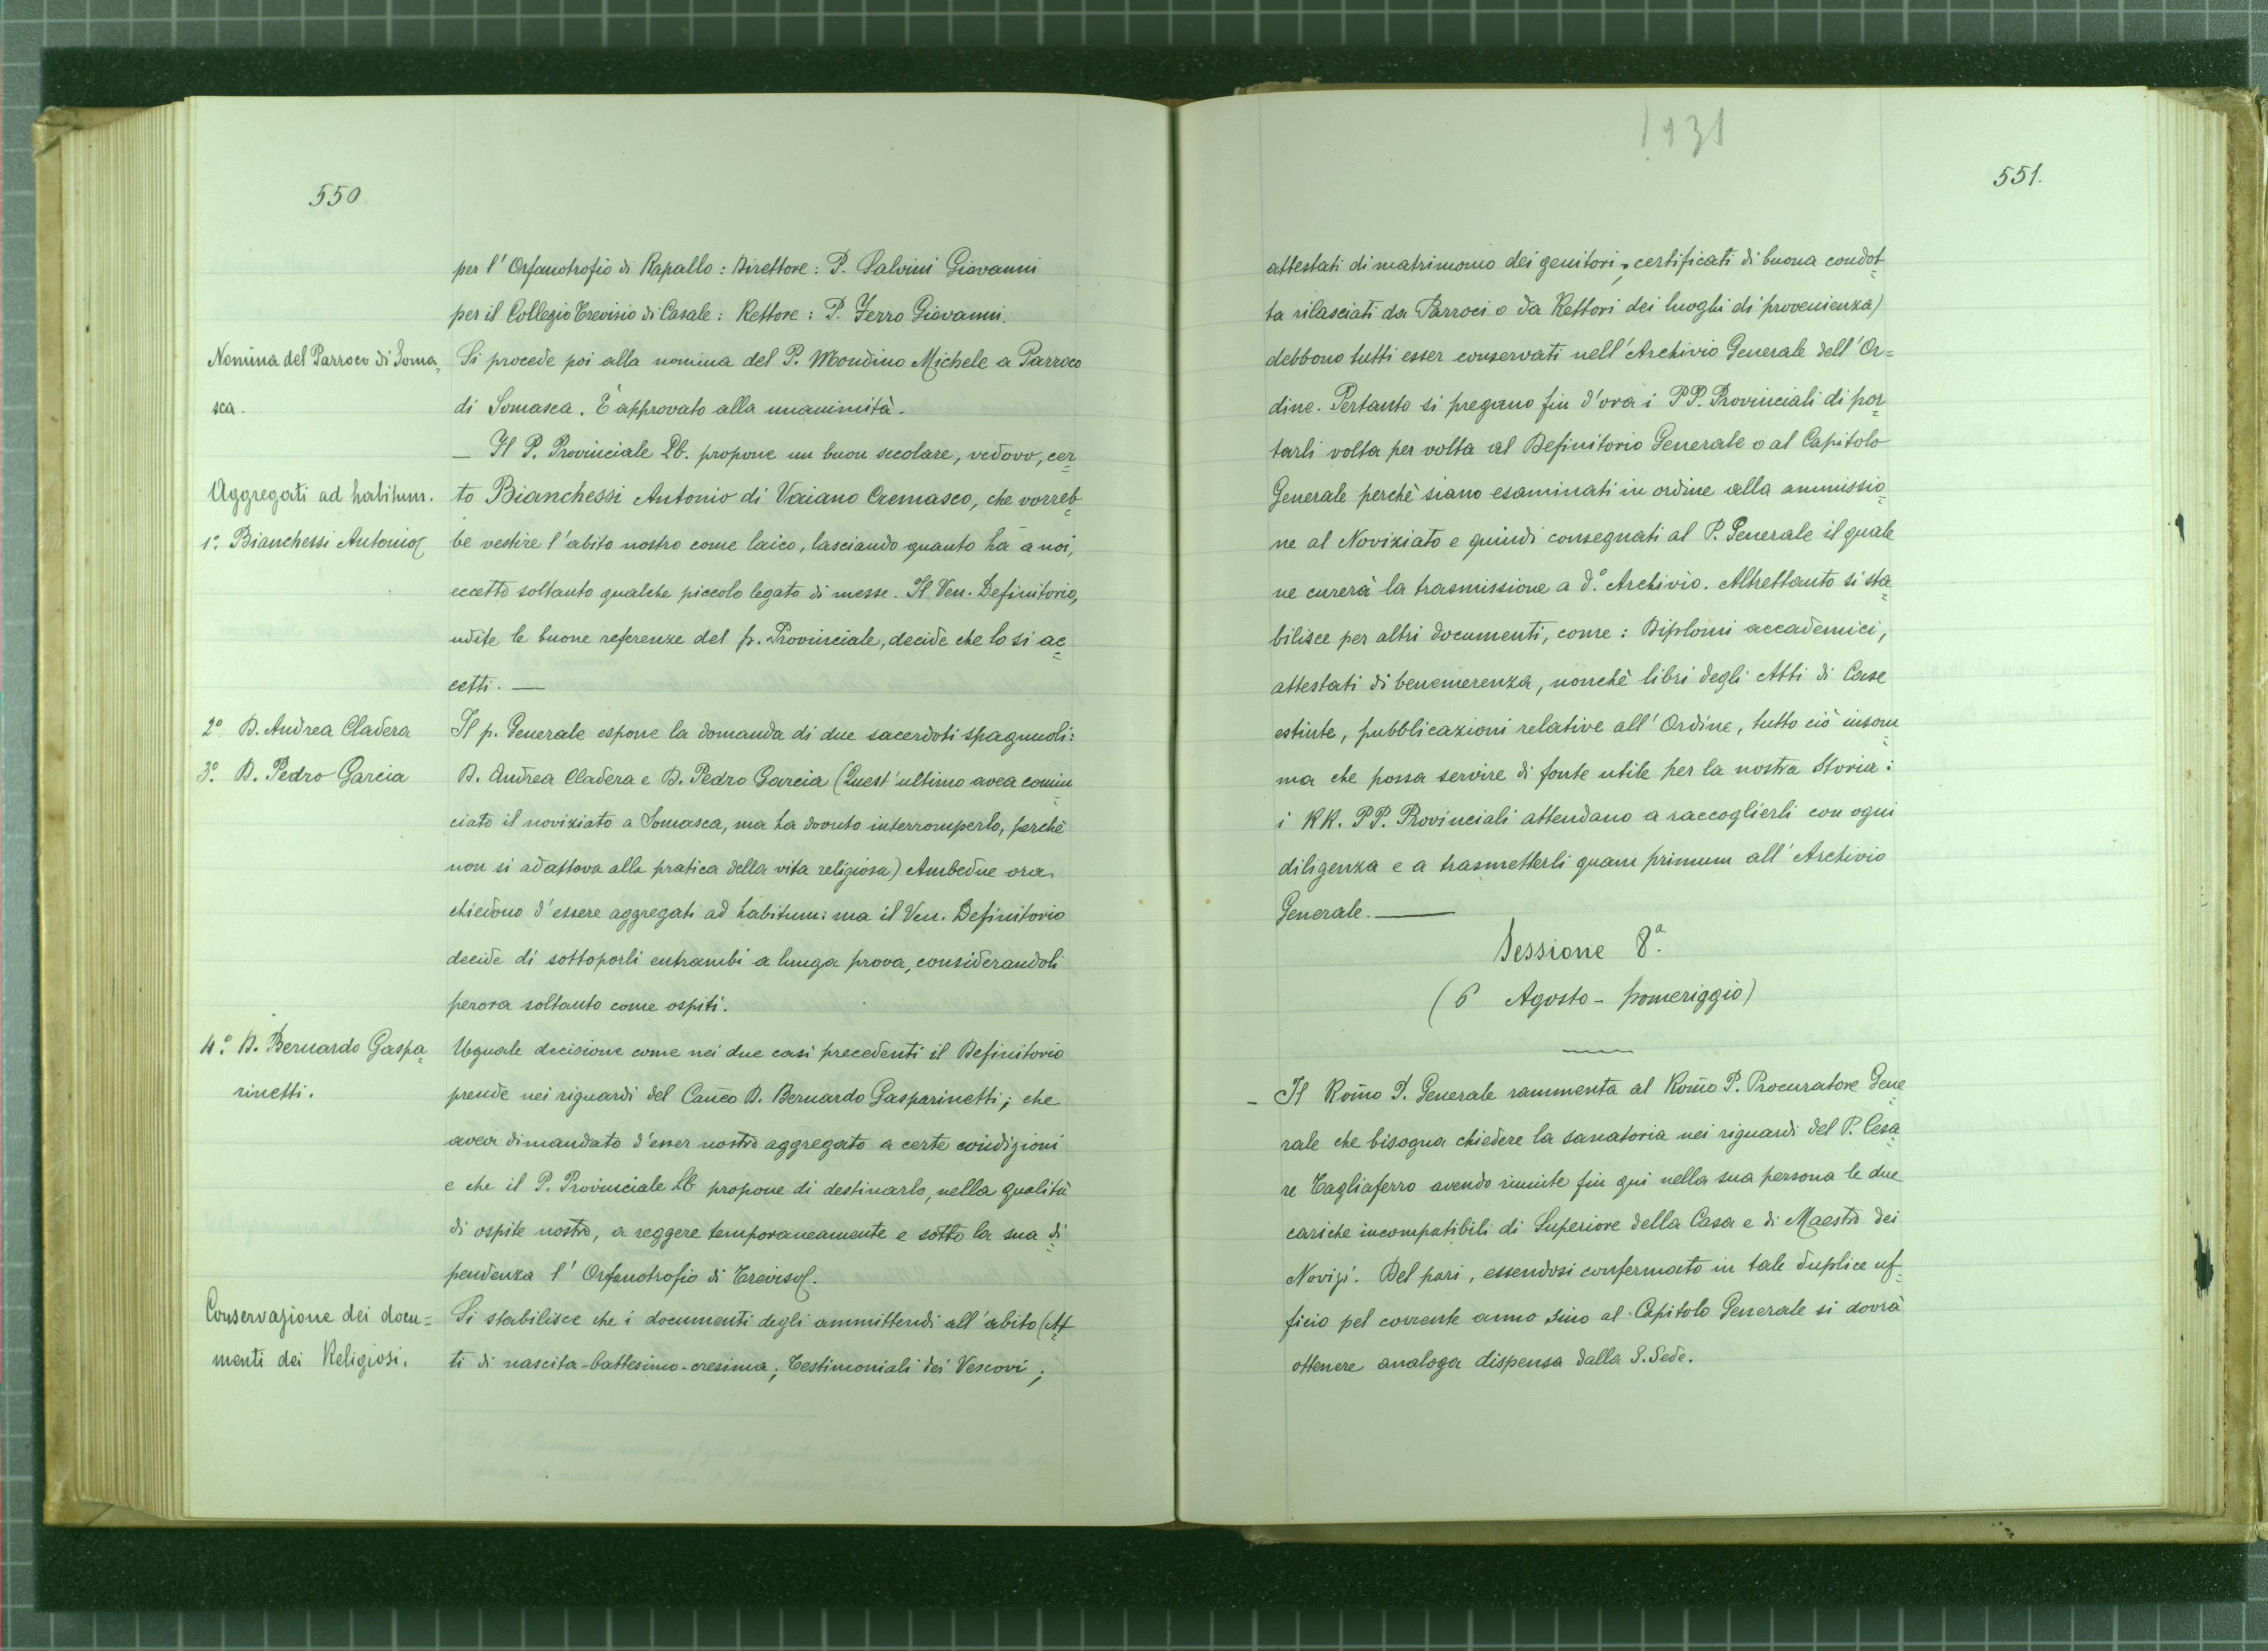 550
per l' Orfanotrofio di Rapallo : Direttore : P. Salvini Giovanni
per il Collegio Trevisio di Casale : Rettore : P. Ferro Giovanni.
Nomina del Parroco di Soma=
sca.
Si procede poi alla nomina del P. Mondino Michele a Parroco
di Somasca. È approvato alla unanimità.
— Il P. Provinciale Lb. propone un buon secolare, vedovo, cer=
Aggregati ad habitum.
1º. Bianchessi Antonio
to Bianchessi Antonio di Vaiano Cremasco, che vorreb=
be vestire l'abito nostro come laico, lasciando quanto ha a noi,
eccetto soltanto qualche piccolo legato di messe. Il Ven. Definitorio,
udite le buone referenze del p. Provinciale, decide che lo si ac=
cetti. —
2º D. Andrea Cladera
3º. D. Pedro Garcia
Il p. Generale espone la domanda di due sacerdoti spagnuoli:
D. Andrea Cladera e D. Pedro Garcia (Quest'ultimo avea comin=
ciato il noviziato a Somasca, ma ha dovuto interromperlo, perchè
non si adattava alla pratica della vita religiosa) Ambedue ora
chiedono d'essere aggregati ad habitum: ma il Ven. Definitorio
decide di sottoporli entrambi a lunga prova, considerandoli
perora soltanto come ospiti.
4º. D. Bernardo Gaspa=
rinetti.
Uguale decisione come nei due casi precedenti il Definitorio
prende nei riguardi del Can̄co D. Bernardo Gasparinetti; che
avea dimandato d'esser nostro aggregato a certe condizioni
e che il P. Provinciale Lb propone di destinarlo, nella qualità
di ospite nostro, a reggere temporaneamente e sotto la sua di=
pendenza l' Orfanotrofio di Treviso.
Conservazione dei docu=
menti dei Religiosi.
Si stabilisce che i documenti degli ammittendi all'abito (At=
ti di nascita-battesimo-cresima; Testimoniali dei Vescovi;
1931
551.
attestati di matrimonio dei genitori; certificati di buona condot=
ta rilasciati da Parroci o da Rettori dei luoghi di provenienza)
debbono tutti esser conservati nell'Archivio Generale dell'Or=
dine. Pertanto si pregano fin d'ora i PP. Provinciali di por=
tarli volta per volta al Definitorio Generale o al Capitolo
Generale perchè siano esaminati in ordine alla ammissio=
ne al Noviziato e quindi consegnati al P. Generale il quale
ne curerà la trasmissione a d.º Archivio. Altrettanto si sta=
bilisce per altri documenti, come : Diplomi accademici,
attestati di benemerenza, nonchè libri degli Atti di Case
estinte, pubblicazioni relative all' Ordine, tutto ciò insom=
ma che possa servire di fonte utile per la nostra Storia :
i RR. PP. Provinciali attendano a raccoglierli con ogni
diligenza e a trasmetterli quam primum all' Archivio
Generale. —
Sessione 8ª.
(6 Agosto - pomeriggio)
- Il Rom̄o P. Generale rammenta al Rom̄o P. Procuratore Gene=
rale che bisogna chiedere la sanatoria nei riguardi del P. Cesa=
re Tagliaferro avendo riunite fin qui nella sua persona le due
cariche incompatibili di Superiore della Casa e di Maestro dei
Novizi. Del pari, essendosi confermato in tale duplice uf=
ficio pel corrente anno sino al Capitolo Generale si dovrà
ottenere analoga dispensa dalla S. Sede.